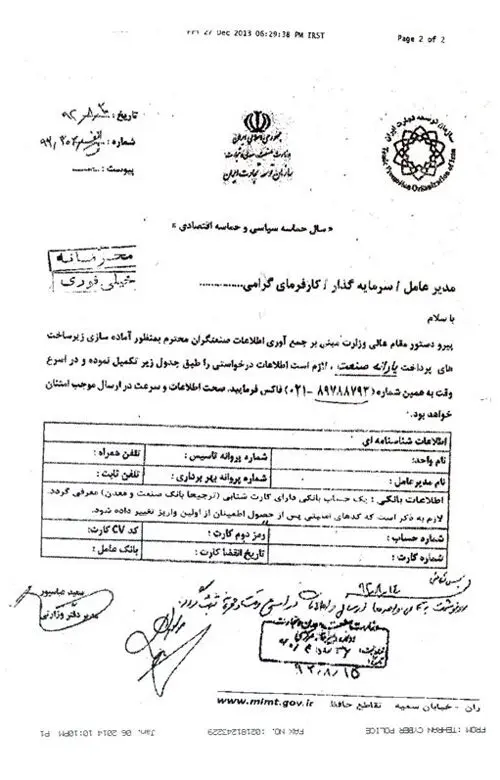 27 Dec 2013 06:29:38 PM IRST
Page 2 of 2
تاریخ :
شماره :
پیوست :
جمهوری اسلامی ایران
وزارت صنعت، معدن و تجارت
سازمان توسعه تجارت ایران
سازمان توسعه تجارت ایران
Trade Promotion Organization of Iran
« سال حماسه سیاسی و حماسه اقتصادی »
محرمانه
خیلی فوری
مدیر عامل / سرمایه گذار / کارفرمای گرامی..............
با سلام
پیرو دستور مقام عالی وزارت مبنی بر جمع آوری اطلاعات صنعتگران محترم بمنظور آماده سازی زیرساخت
های پرداخت یارانه صنعت ، لازم است اطلاعات درخواستی را طبق جدول زیر تکمیل نموده و در اسرع
وقت به همین شماره (۸۹۷۸۸۷۹۳ -۰۲۱) فاکس فرمایید. صحت اطلاعات و سرعت در ارسال موجب امتنان
خواهد بود.
اطلاعات شناسنامه ای
نام واحد: شماره پروانه تاسیس : تلفن همراه :
نام مدیر عامل : شماره پروانه بهره برداری : تلفن ثابت :
اطلاعات بانکی : یک حساب بانکی دارای کارت شتابی (ترجیحا بانک صنعت و معدن) معرفی گردد.
لازم به ذکر است که کدهای امنیتی پس از حصول اطمینان از اولین واریز تغییر داده شود.
شماره حساب : رمز دوم کارت : کد CV کارت:
شماره کارت : تاریخ انقضا کارت : بانک عامل :
۹۲،۸،۱۴
سعید عباسپور
مدیر دفتر وزارتی
۹۲/۸/۱۵
ران - خیابان سمیه تقاطع حافظ
www.mimt.gov.ir
FROM: TEHRAN CYBER POLICE FAX NO. :02181243229 Jan. 06 2014 10:10PM P1